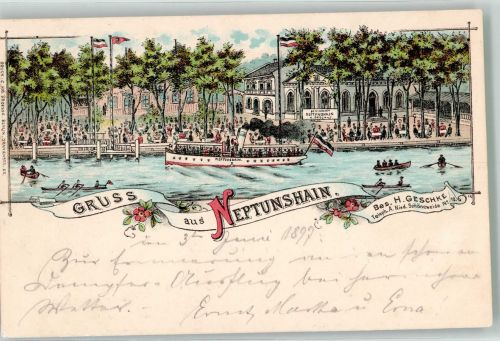 NEPTUNSHAIN
GRUSS
aus
NEPTUNSHAIN.
Bes. H. GESCHKE
d. 3ten Juni 1897.
Zur Erinnerung an den schönen
Dampfer-Ausflug bei
Wetter.
Ernst, Martha u Erna